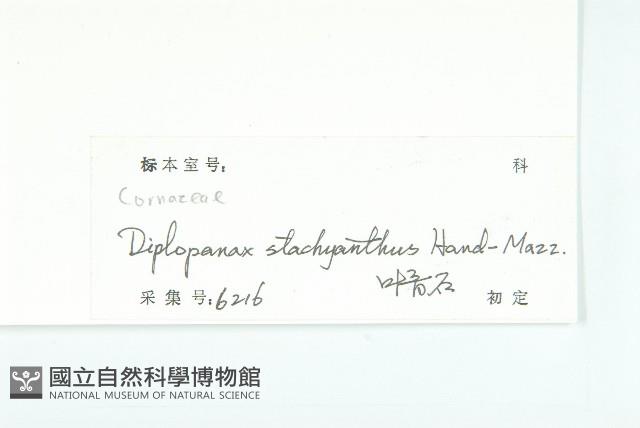 标本室号: 科
Cornaceae
Diplopanax stachyanthus Hand-Mazz.
采集号: 6216 初定
國立自然科學博物館
NATIONAL MUSEUM OF NATURAL SCIENCE